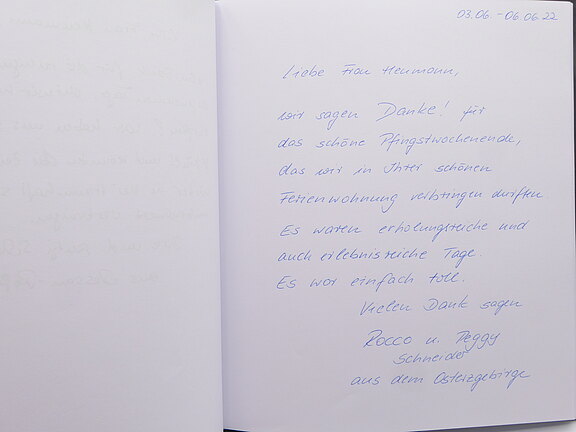 03.06. - 06.06.22
Liebe Frau Heumann,
wir sagen Danke! für
das schöne Pfingstwochenende,
das wir in Ihrer schönen
Ferienwohnung verbringen durften.
Es waren erholungsreiche und
auch erlebnisreiche Tage.
Es war einfach toll.
Vielen Dank sagen
Rocco u. Peggy
Schneider
aus dem Osterzgebirge